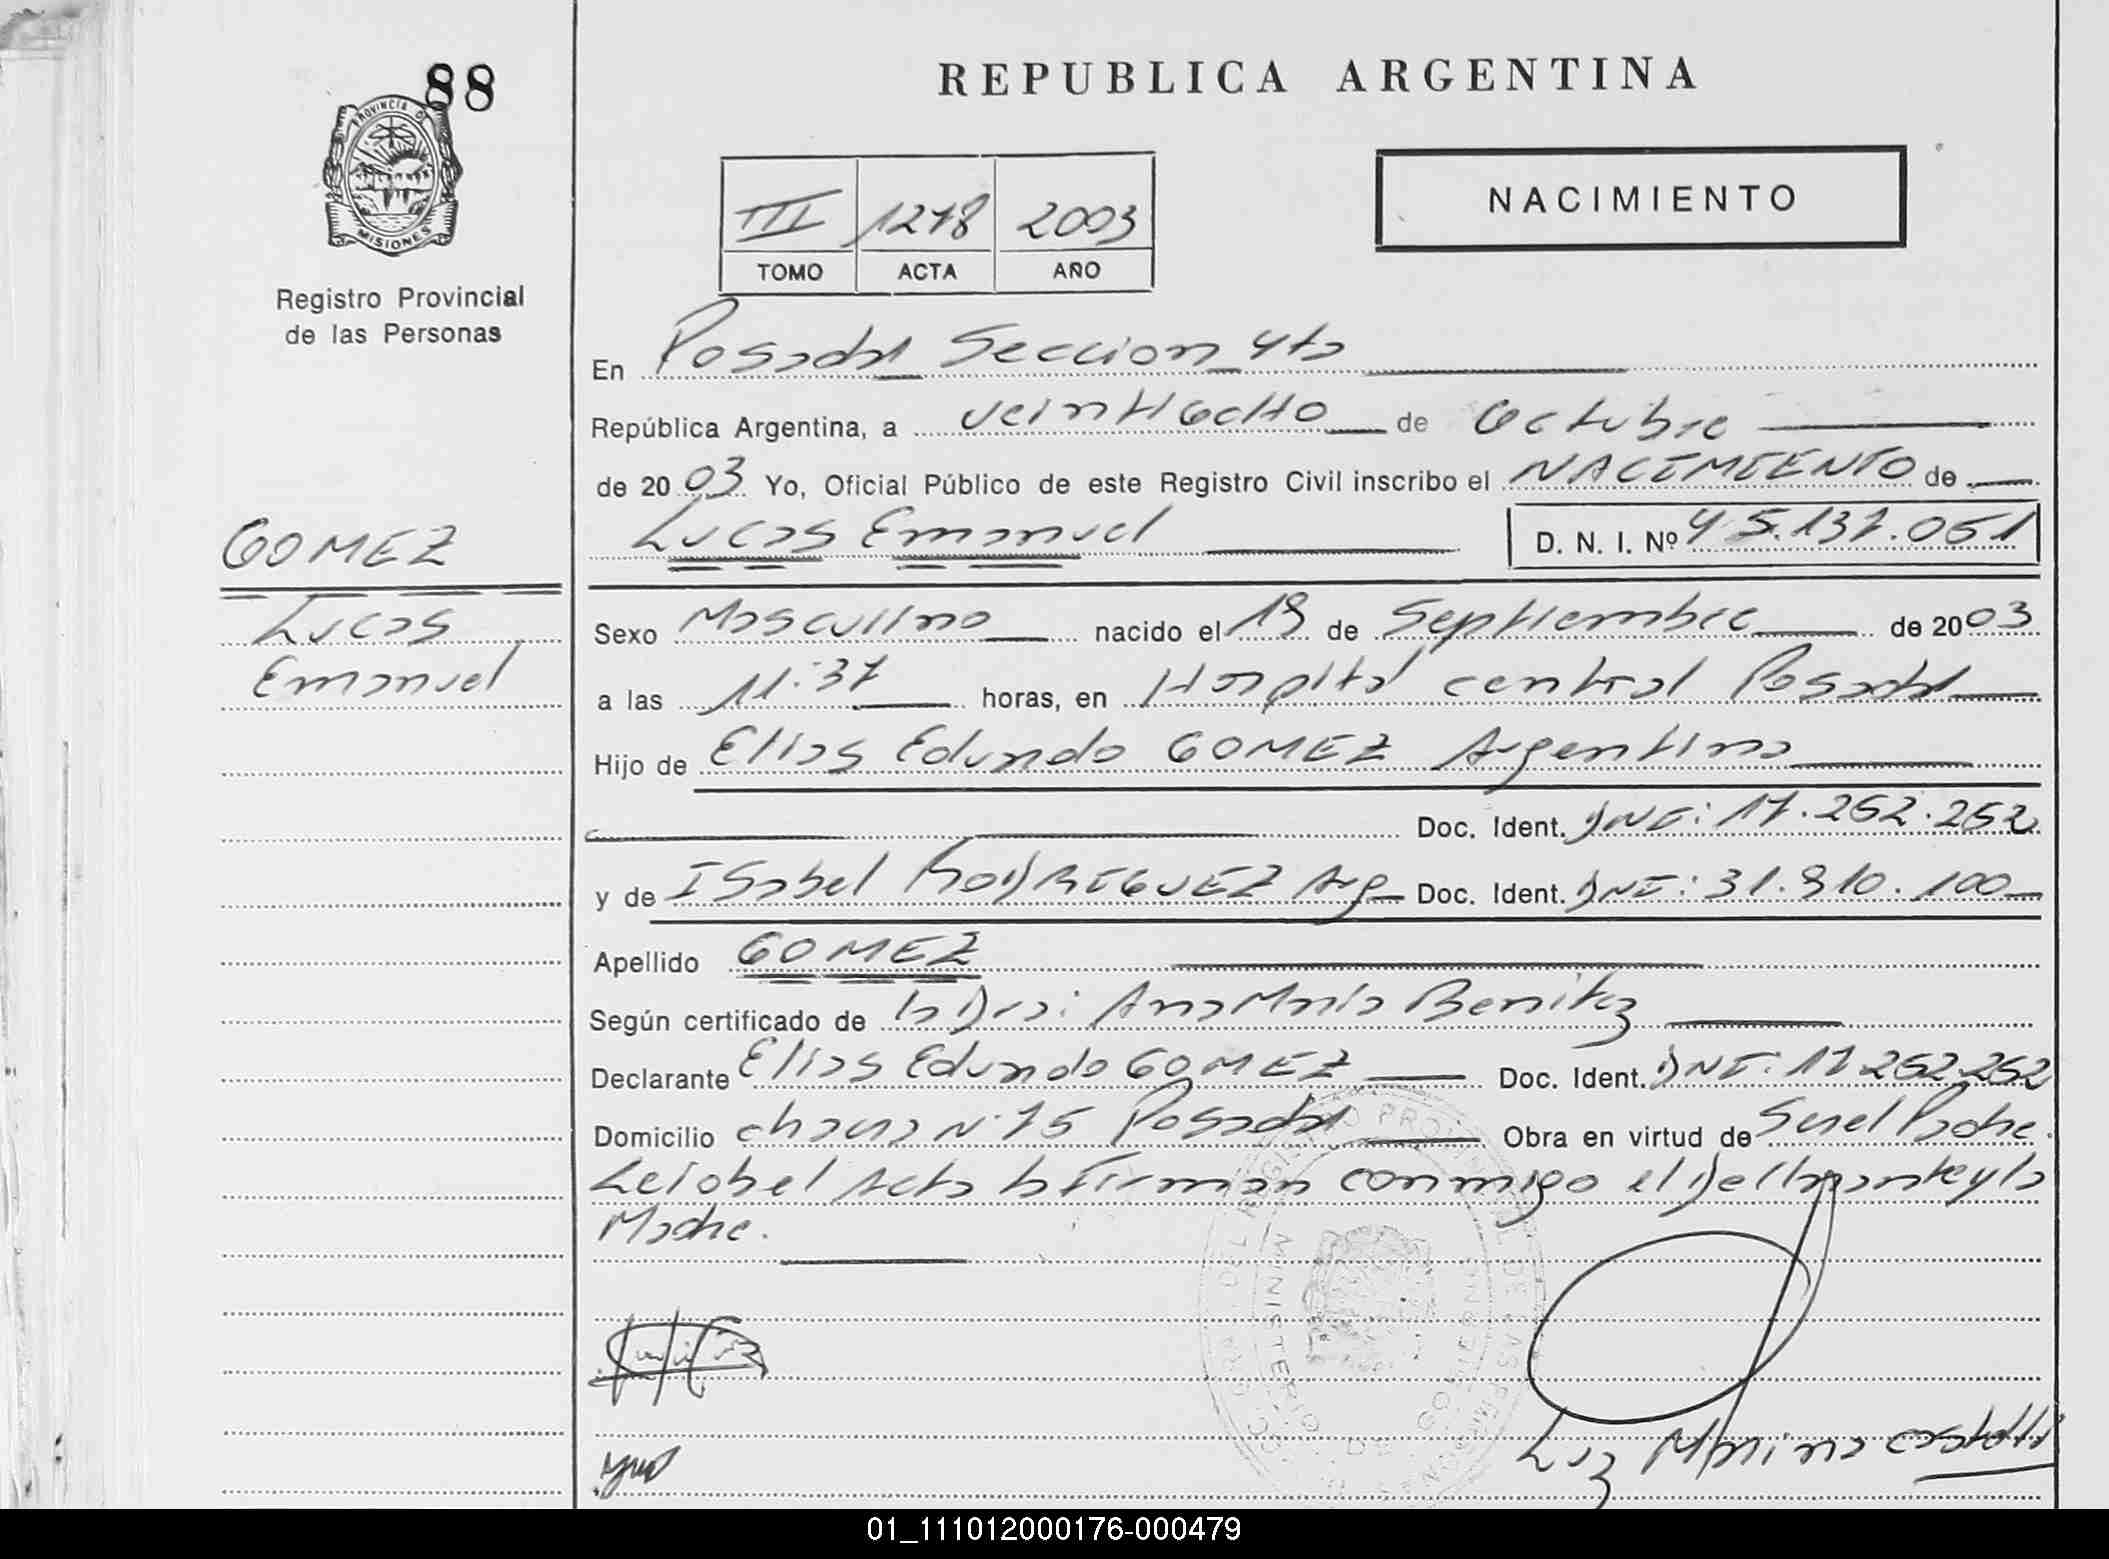 88
PROVINCIA DE
MISIONES
Registro Provincial
de las Personas
REPUBLICA ARGENTINA
NACIMIENTO
III 1278 2003
TOMO ACTA AÑO
En Posadas Seccion 4ta
República Argentina, a veintiocho de Octubre
de 2003 Yo, Oficial Público de este Registro Civil inscribo el NACIMIENTO de
Lucas Emanuel D. N. I. Nº 45.137.051
GOMEZ
Lucas
Emanuel
Sexo Masculino nacido el 19 de Septiembre de 2003
a las 11:37 horas, en Hospital central Posadas
Hijo de Elias Edundo GOMEZ Argentino
Doc. Ident. DNI: 17.252.252
y de ISabel RODRIGUEZ Arg Doc. Ident. DNI: 31.910.100
Apellido GOMEZ
Según certificado de la Dra: Ana Maria Benitez
Declarante Elias Edundo GOMEZ Doc. Ident. DNI: 17.252.252
Domicilio chacra Nº 75 Posadas Obra en virtud de Ser el Padre.
Leida el Acta la Firman conmigo el Declarante y la
Madre.
Luz Marina Castelli
01_111012000176-000479